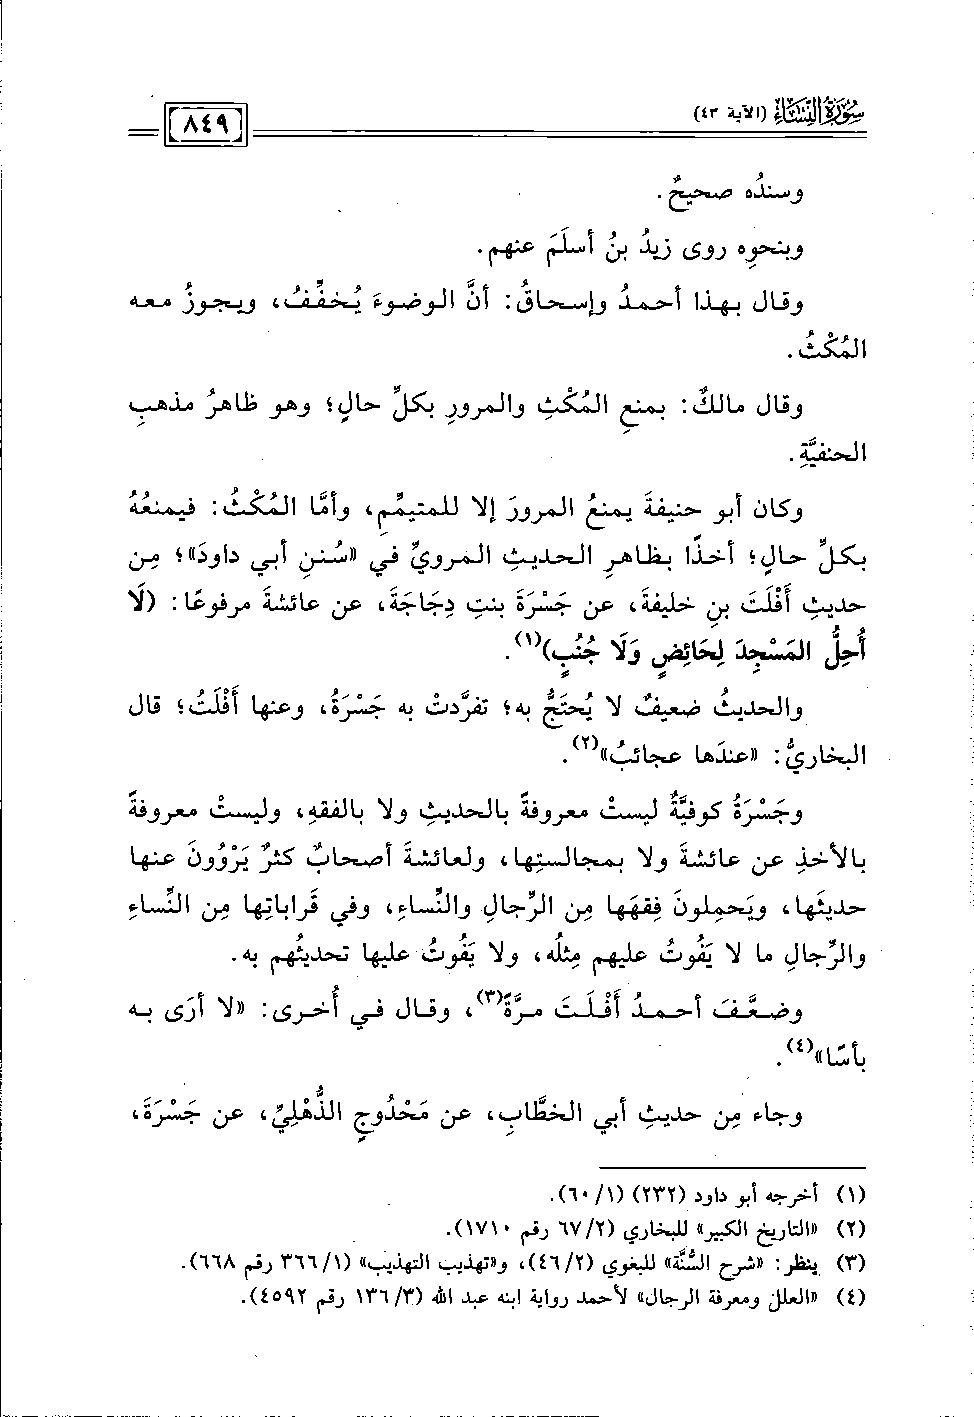 سُورَةُ النِّسَاءِ (الآية ٤٣)
٨٤٩
وسندُه صحيحٌ.
وبنحوِه روى زيدُ بنُ أسلَمَ عنهم.
وقال بهذا أحمدُ وإسحاقُ: أنَّ الوضوءَ يُخفِّفُ، ويجوزُ معه
المُكْثُ.
وقال مالكٌ: بمنعِ المُكْثِ والمرورِ بكلِّ حالٍ؛ وهو ظاهرُ مذهبِ
الحنفيَّةِ.
وكان أبو حنيفةَ يمنعُ المرورَ إلا للمتيمِّمِ، وأمَّا المُكْثُ: فيمنعُهُ
بكلِّ حالٍ؛ أخذًا بظاهرِ الحديثِ المرويِّ في «سُننِ أبي داودَ»؛ مِن
حديثِ أَفْلَتَ بنِ خليفةَ، عن جَسْرَةَ بنتِ دِجَاجَةَ، عن عائشةَ مرفوعًا: (لَا
أُحِلُّ المَسْجِدَ لِحَائِضٍ وَلَا جُنُبٍ)(١).
والحديثُ ضعيفٌ لا يُحتَجُّ به؛ تفرَّدتْ به جَسْرَةُ، وعنها أَفْلَتُ؛ قال
البخاريُّ: «عندَها عجائبُ»(٢).
وجَسْرَةُ كوفيَّةٌ ليستْ معروفةً بالحديثِ ولا بالفقهِ، وليستْ معروفةً
بالأخذِ عن عائشةَ ولا بمجالستِها، ولعائشةَ أصحابٌ كثرٌ يَرْوُونَ عنها
حديثَها، ويَحمِلونَ فِقهَها مِن الرِّجالِ والنِّساءِ، وفي قَراباتِها مِن النِّساءِ
والرِّجالِ ما لا يَفُوتُ عليهم مِثلُه، ولا يَفُوتُ عليها تحديثُهم به.
وضعَّفَ أحمدُ أَفْلَتَ مرَّةً(٣)، وقال في أُخرى: «لا أرَى به
بأسًا»(٤).
وجاء مِن حديثِ أبي الخطَّابِ، عن مَحْدُوجٍ الذُّهْلِيِّ، عن جَسْرَةَ،
(١) أخرجه أبو داود (٢٣٢) (٦٠/١).
(٢) «التاريخ الكبير» للبخاري (٦٧/٢ رقم ١٧١٠).
(٣) ينظر: «شرح السُّنَّة» للبغوي (٤٦/٢)، و«تهذيب التهذيب» (٣٦٦/١ رقم ٦٦٨).
(٤) «العلل ومعرفة الرجال» لأحمد رواية ابنه عبد الله (١٣٦/٣ رقم ٤٥٩٢).